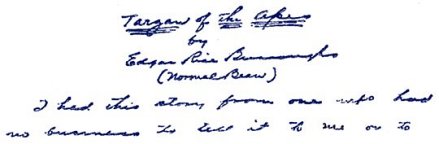 Tarzan of the Apes
by
Edgar Rice Burroughs
(Normal Bean)
I had this story from one who had
no business to tell it to me or to